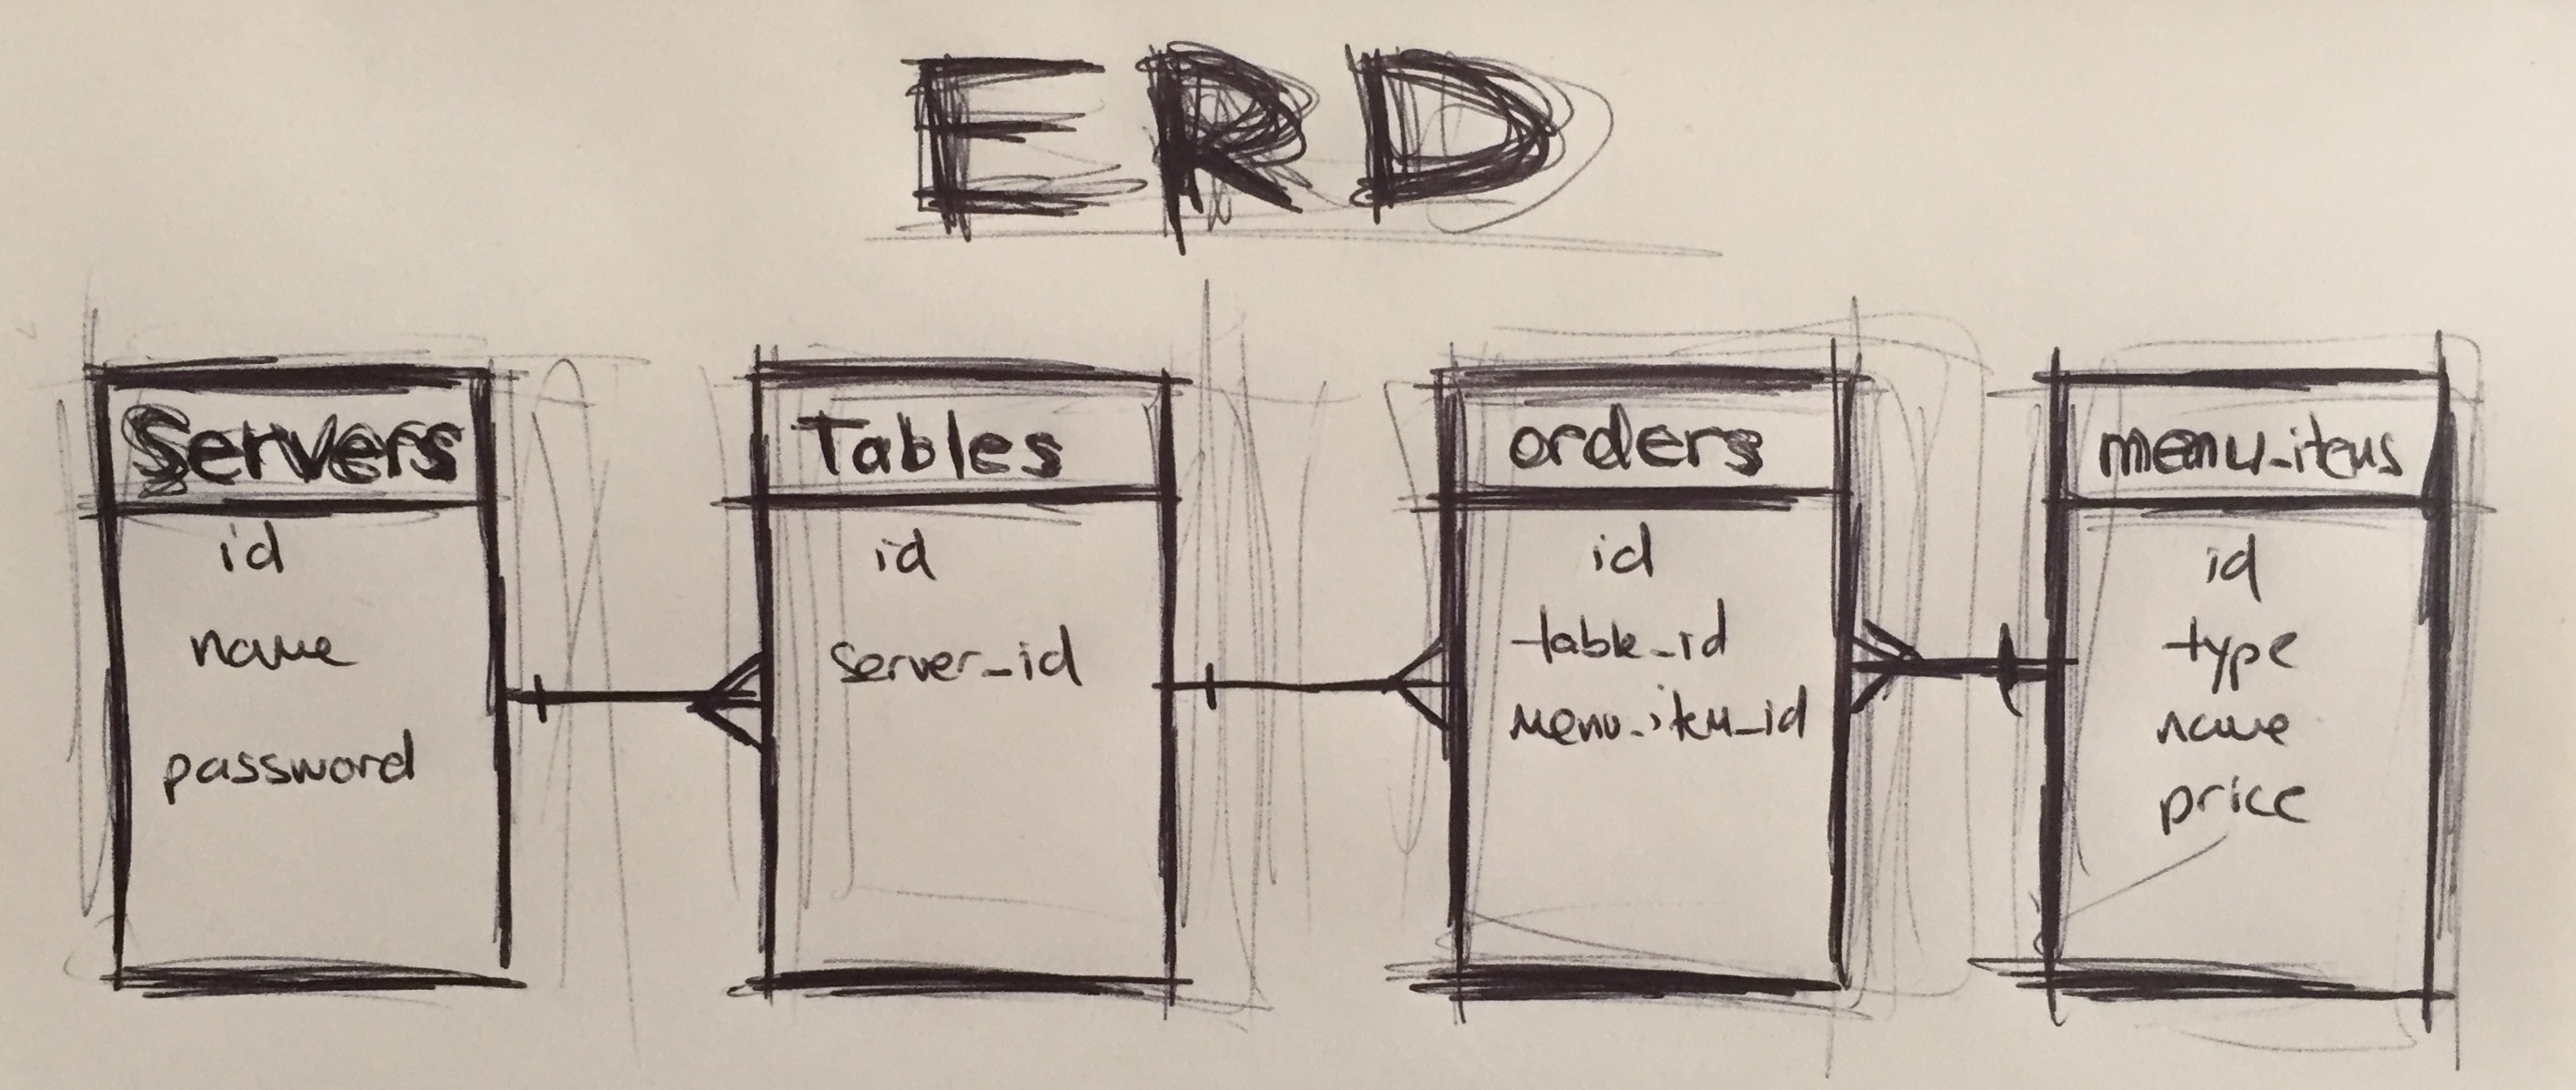 ERD
Servers
id
name
password
Tables
id
server_id
orders
id
table_id
menu_item_id
menu_items
id
type
name
price